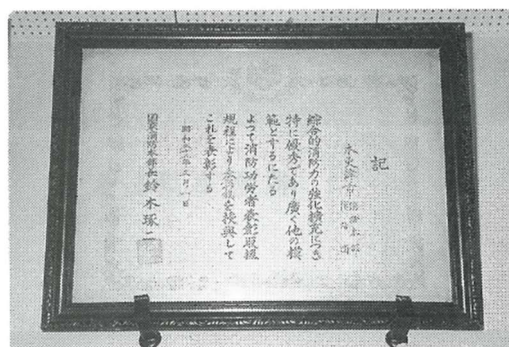 記
木更津市消防本部
消防団
綜合的消防力の強化擴充につき
特に優秀であり廣く他の模
範とするにたる
よつて消防功労者表彰服援
規程により表彰旗を授與して
これを表彰する
昭和三十二年三月一日
国家消防本部長 鈴木琢二